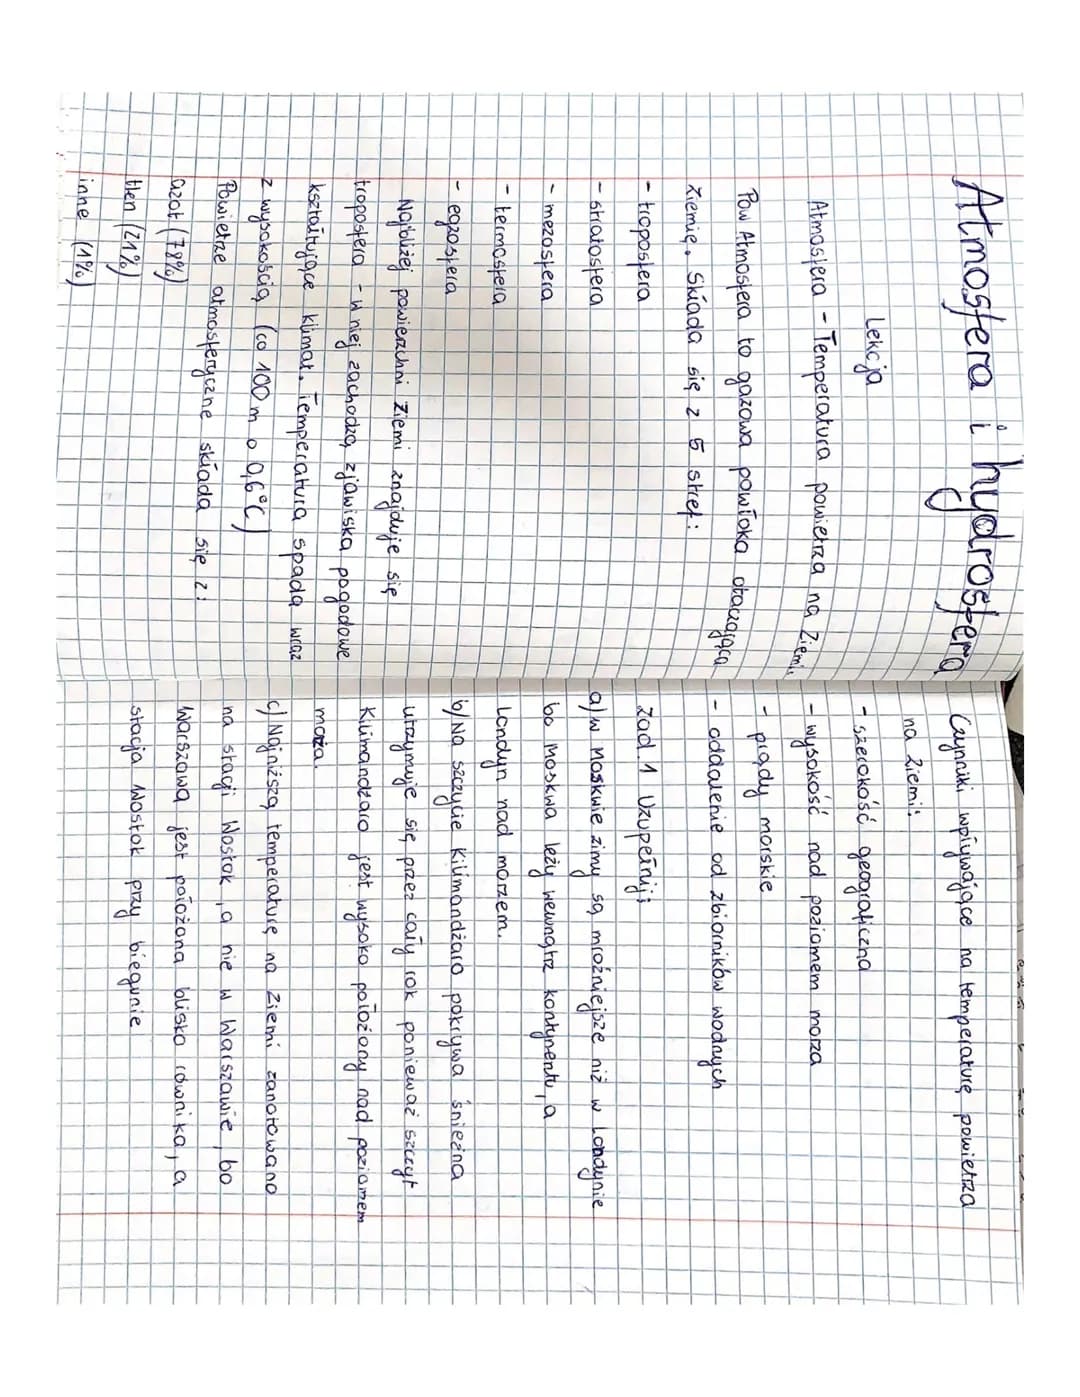 Atmosfera i hydrosfera
Lekcja
Atmosfera - Temperatura powietrza na Ziemi.
Pow Atmosfera to gazowa powłoka otaczająca
Ziemię. Składa się z 5 stref:
- troposfera
- stratosfera
- mezosfera
- termosfera
- egzosfera
Najbliżej powierzchni Ziemi znajduje się
troposfera - w niej zachodzą zjawiska pogodowe
kształtujące klimat. Temperatura spada wraz
z wysokością (co 100 m o 0,6°C)
Powietrze atmosferyczne składa się z:
azot (78%)
tlen (21%)
inne (1%)
Czynniki wpływające na temperaturę powietrza
na Ziemi:
- szerokość geograficzna
- wysokość nad poziomem morza
- prądy morskie
- oddalenie od zbiorników wodnych
zad. 1 Uzupełnij:
a) w Moskwie zimy są mroźniejsze niż w Londynie
bo Moskwa leży wewnątrz kontynentu, a
Londyn nad morzem.
b) Na szczycie Kilimandżaro pokrywa śnieżna
utrzymuje się przez cały rok ponieważ szczyt
Kilimandżaro jest wysoko położony nad poziomem
morza.
c) Najniższą temperaturę na Ziemi zanotowano
na stacji Wostok, a nie w Warszawie, bo
Warszawa jest położona blisko równika, a
stacja Wostok przy biegunie